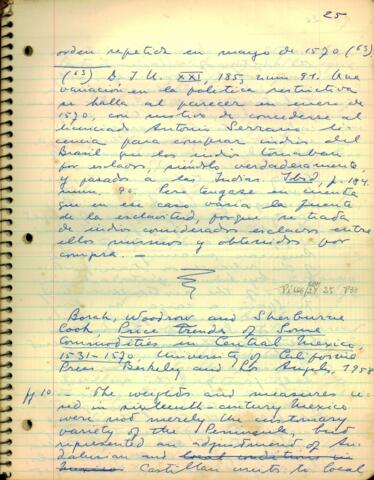 25
orden repetida en mayo de 1570 (63).
(63) D. I. U. XXI, 185, num 91. Una
variación en la política restrictiva
se halla al parecer en enero de
1570, con motivo de concederse al
licenciado Antonio Serrano li-
cencia para comprar indios del
Brasil que los indios tomaban
por esclavos, siéndolo verdaderamente,
y pasarlos a las Indias. Ibid, p. 184,
num. 90. Pero tengase en cuenta
que en ese caso varía la fuente
de la esclavitud, porque se trata
de indios considerados esclavos entre
ellos mismos y obtenidos por
compra. —
25
Borah, Woodrow and Sherburne
Cook, Price Trends of Some
Commodities in Central Mexico,
1531-1570, University of California
Press. Berkeley and Los Angeles, 1958
p. 10 - "The weights and measures u-
sed in sixteenth-century Mexico
were not merely the customary
variety of the Peninsula, but
represented an adjustment of An-
dalusian and local conditions in
Mexico Castilian units to local